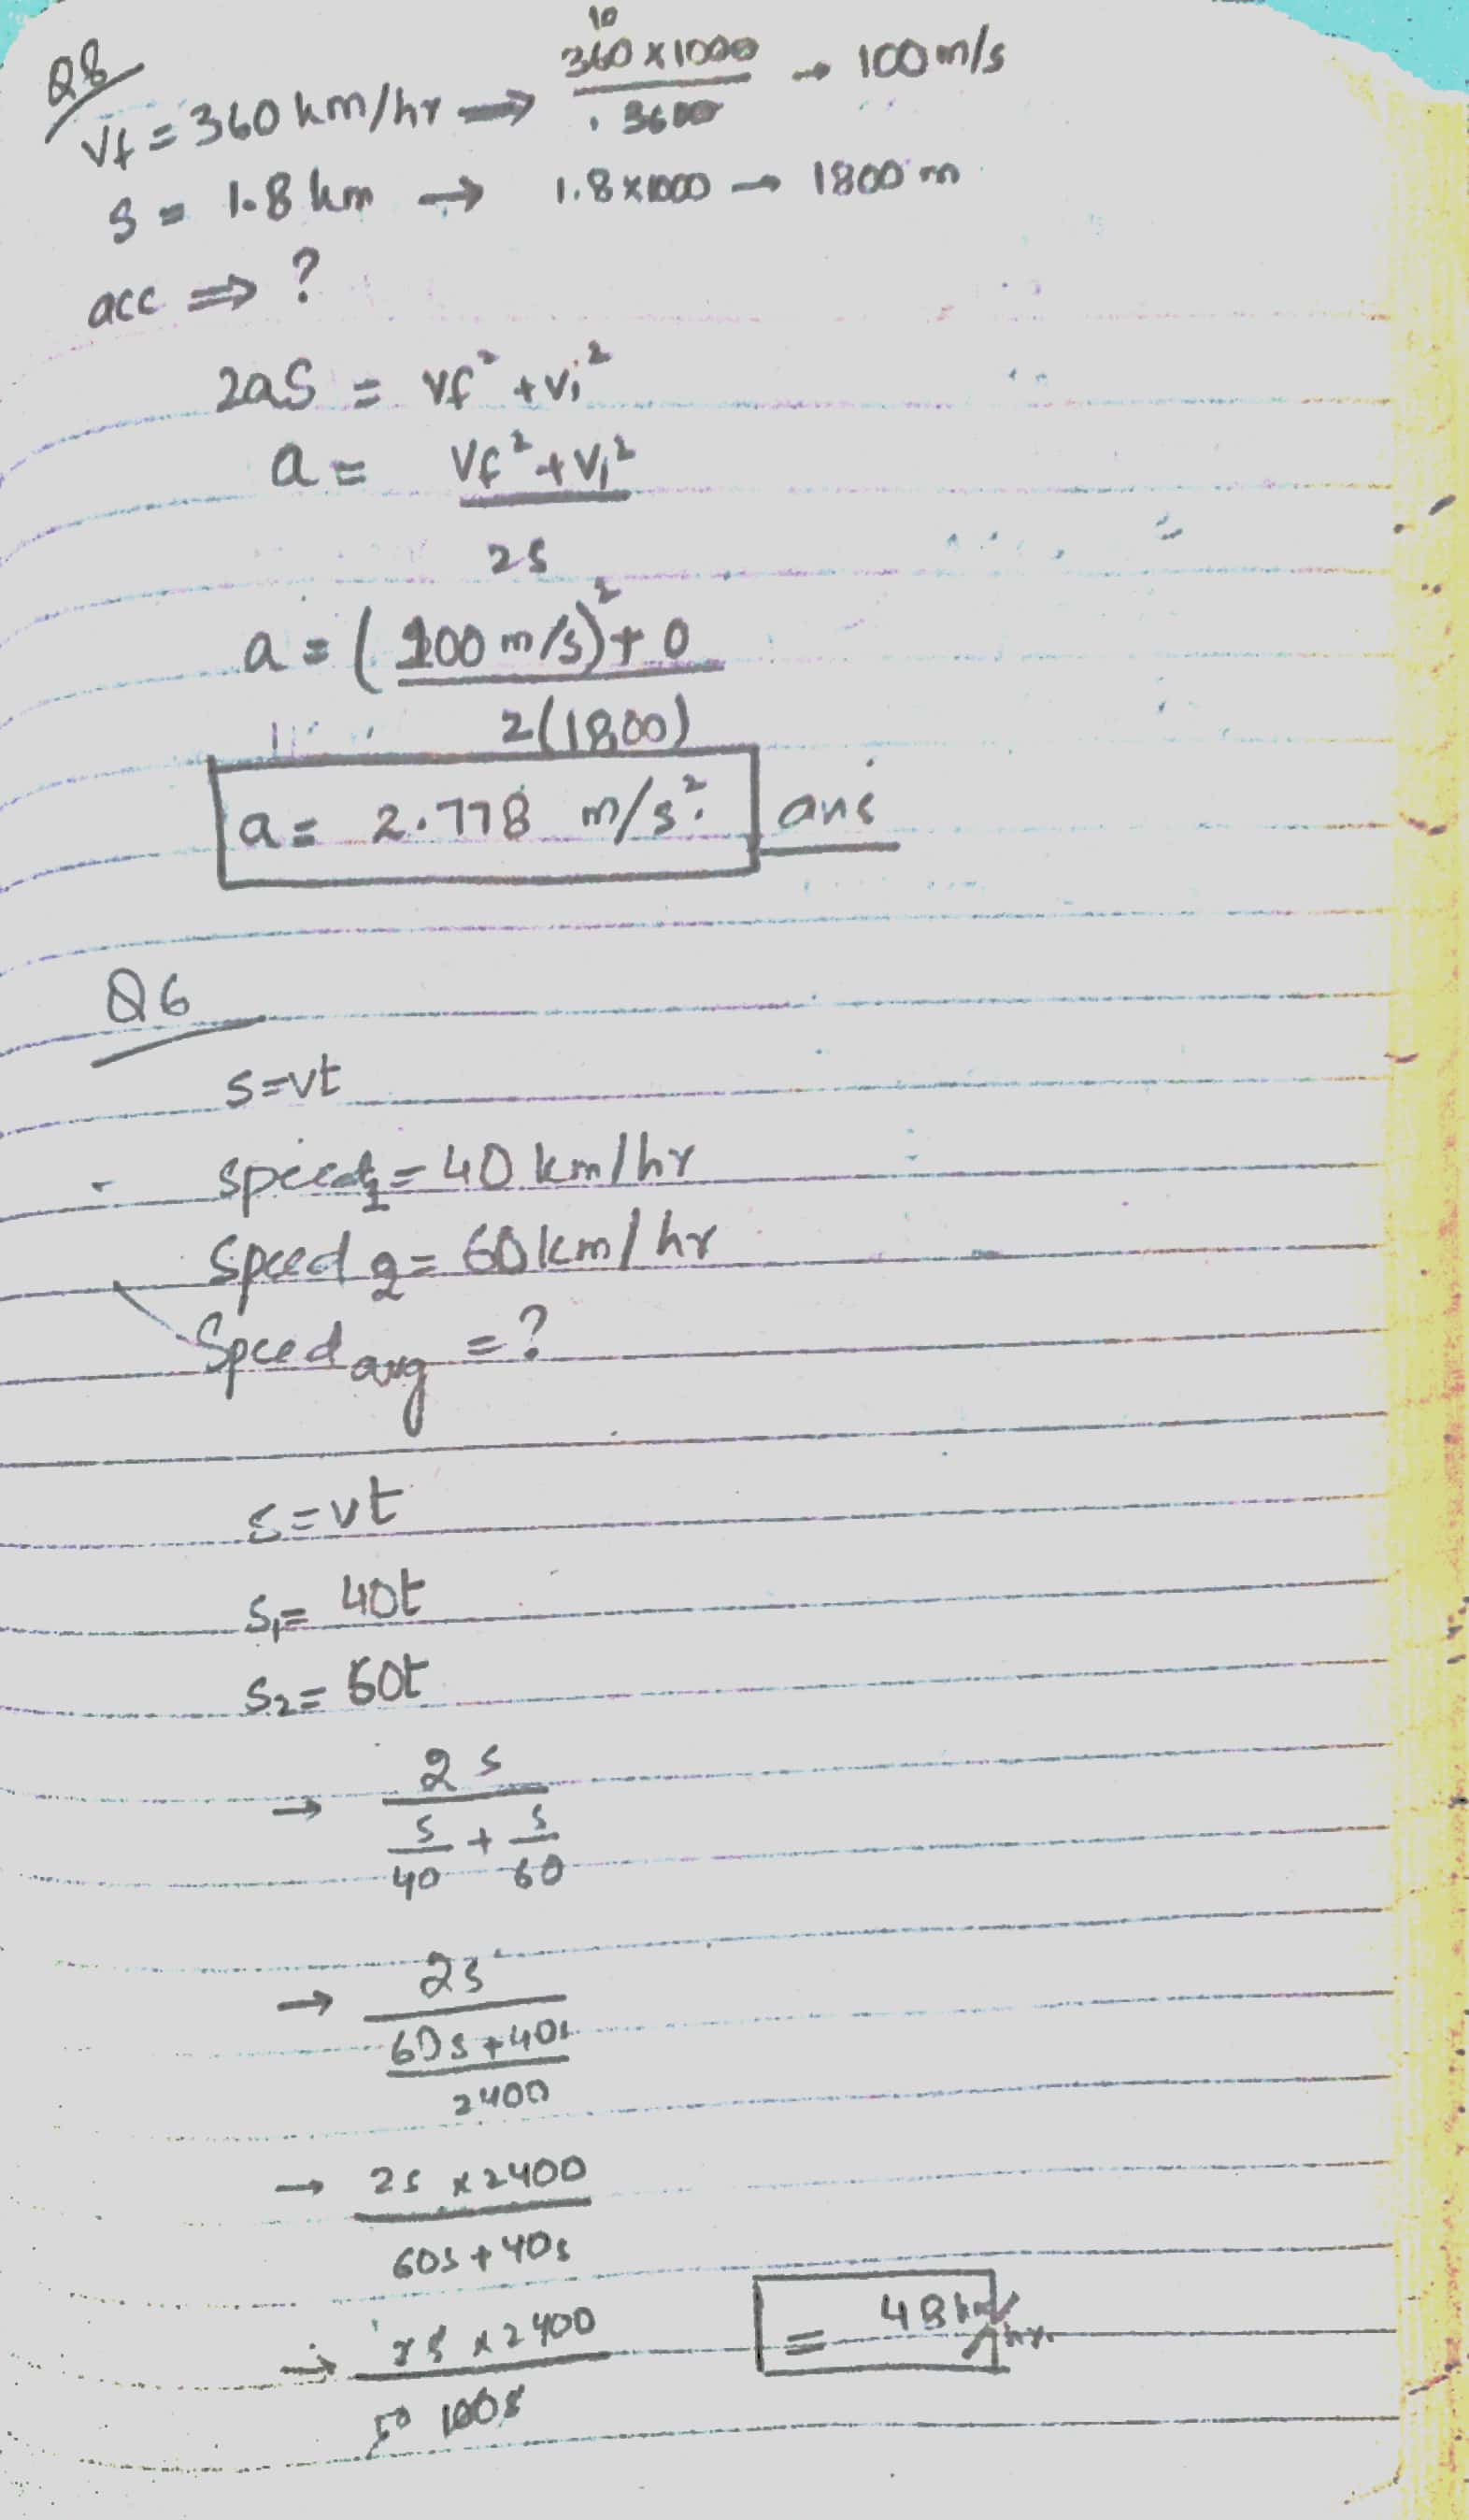 Q8
vf = 360 km/hr ⟹ 360 x 1000 / 3600 → 100 m/s
10
S = 1.8 km → 1.8 x 1000 → 1800 m
acc ⟹ ?
2aS = vf² + vi²
a = vf² + vi² / 2S
a = (100 m/s)² + 0 / 2(1800)
a = 2.778 m/s². ans
Q6
s = vt
speed 1 = 40 km/hr
Speed 2 = 60 km/hr
Speed avg = ?
s = vt
s1 = 40t
s2 = 60t
→ 2s / s/40 + s/60
→ 2s / 60s + 40s / 2400
→ 2s x 2400 / 60s + 40s
→ 2s x 2400 / 50 100s = 48 km/hr.